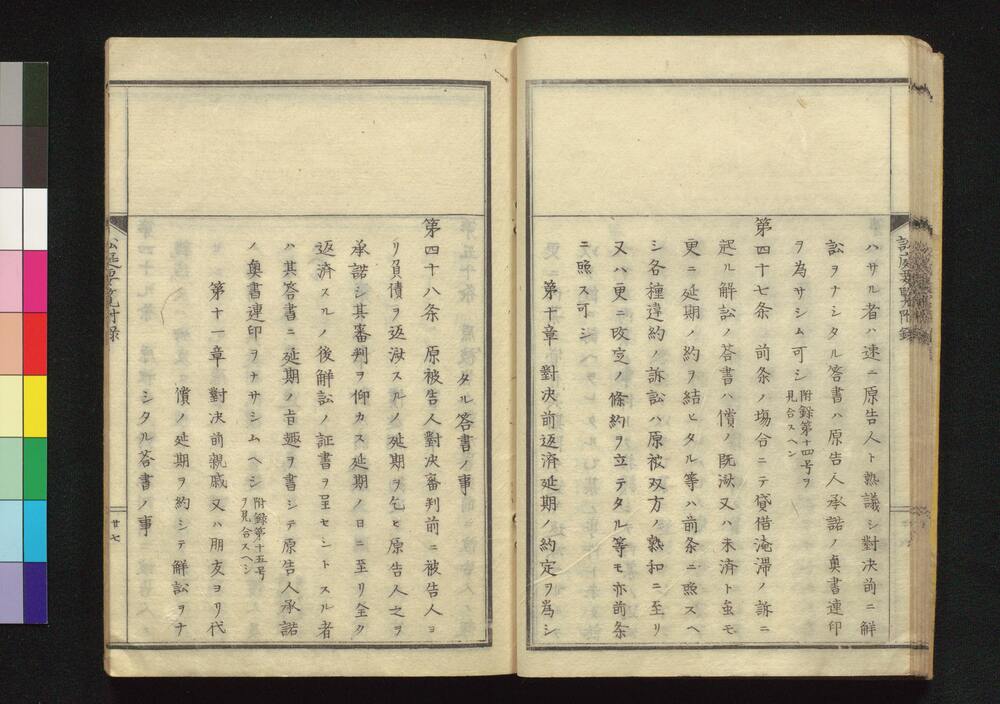 ハサル者ハ速ニ原告人ト熟議シ對决前ニ解
訟ヲナシタル答書ハ原告人承諾ノ奥書連印
ヲ為サシム可シ附録第十四号ヲ見合スヘシ
第四十七条 前条ノ塲合ニテ貸借淹滞ノ訴ニ
起ル解訟ノ答書ハ償ノ既濟又ハ未済ト虽モ
更ニ延期ノ約ヲ結ヒタル等ハ前条ニ照スヘ
シ各種違約ノ訴訟ハ原被双方ノ熟和ニ至リ
又ハ更ニ改定ノ條約ヲ立テタル等モ亦前条
ニ照ス可シ
第十章 對决前返済延期ノ約定ヲ為シ
タル答書ノ事
第四十八条 原被告人對决審判前ニ被告人ヨ
リ負債ヲ返濟スルノ延期ヲ乞ヒ原告人之ヲ
承諾シ其審判ヲ仰カス延期ノ日ニ至リ全ク
返済スルノ後解訟ノ証書ヲ呈セントスル者
ハ其答書ニ延期ノ旨趣ヲ書シテ原告人承諾
ノ奥書連印ヲナサシムヘシ附録第十五号ヲ見合スヘシ
第十一章 對决前親戚又ハ朋友ヨリ代
償ノ延期ヲ約シテ解訟ヲナ
シタル答書ノ事
廿七